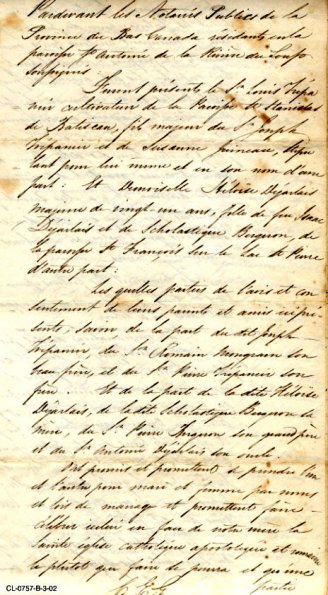 Pardevant les Notaires Publics de la
Province du Bas Canada résidants en la
paroisse St Antoine de la Rivière du Loup
Soussignés
Furent présents le Sr Louis Trépa
nier cultivateur de la Paroisse St Stanislas
de Batiscan, fils majeur du Sr Joseph
Trépanier et de Susanne Juineau, stipu
lant pour lui même et en son nom d'une
part: Et Demoiselle Héloise Dejarlais
majeure de vingt un ans, fille de feu
Dejarlais et de Scholastique Bergeron, de
la paroisse St François sur le Lac St Pierre
d'autre part:
Les quelles parties de l'avis et con
sentement de leurs parents et amis ci présents,
savoir de la part du dit Joseph
Trépanier, du Sr Romain Mongrain son
beau père, et du Sr Pierre Trépanier son
frère. Et de la part de la dite Héloise
Dejarlais, de la dite Scholastique Bergeron sa
mère, du Sr Pierre son grand père
et du Sr Antoine Dejarlais son oncle.
Ont promis et promettent se prendre l'un
et l'autre pour mari et femme par noms
et lois de mariage et promettent faire
célébrer icelui en face de notre mère la
Sainte église catholique apostolique et romaine
le plutôt que faire se pourra et qu'une
partie
CL-0757-B-3-02